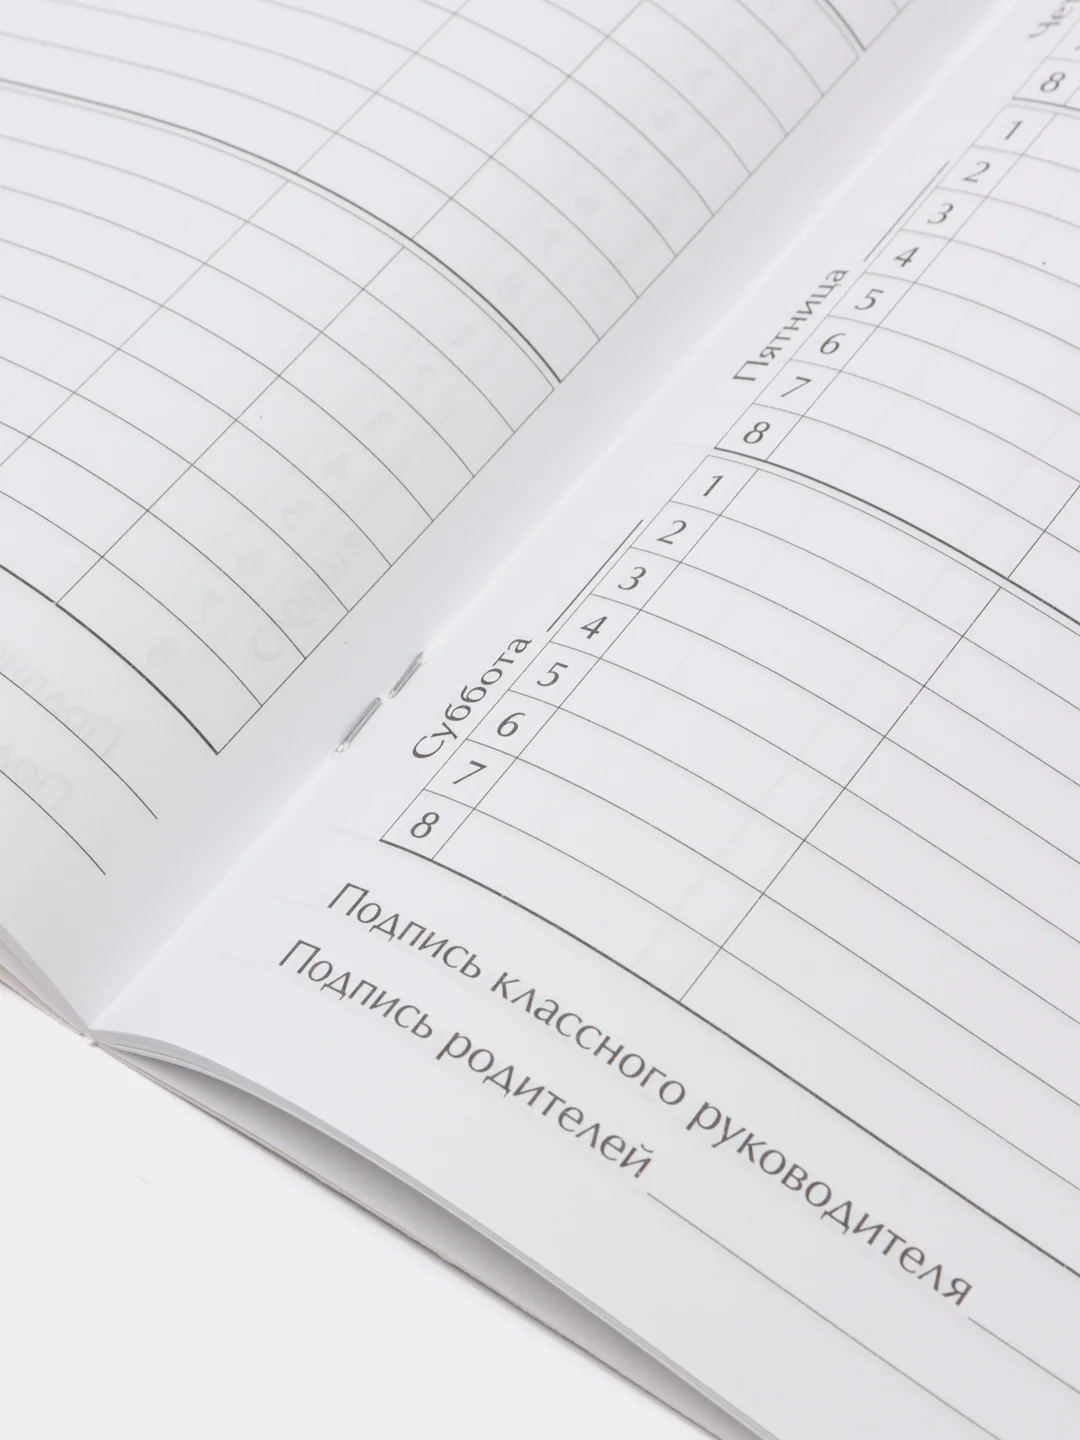 Чет
8
Пятница
1
2
3
4
5
6
7
8
Суббота
1
2
3
4
5
6
7
8
Подпись классного руководителя
Подпись родителей